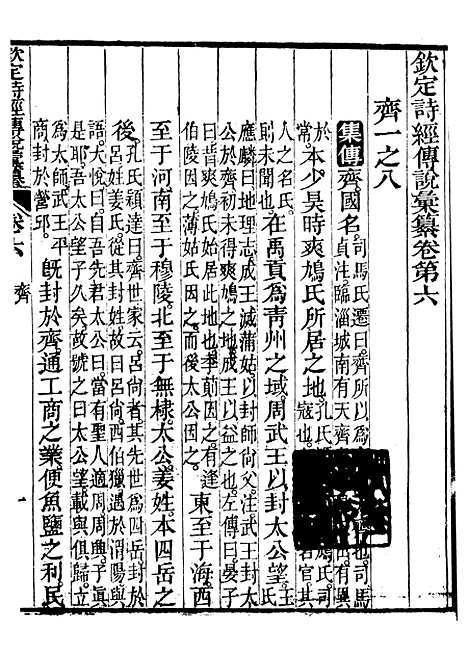 欽定詩經傳說彙纂卷第六
齊一之八
集傳齊國名司馬氏遷曰齊所以為
也司馬
貞注臨淄城南有天齊
有異
於常本少昊時爽鳩氏所居之地孔氏
鳩氏司
寇也
名官其
人之名氏
則未聞也在禹貢為靑州之域周武王以封太公望王氏
應麟曰地理志成王滅蒲姑以封師尚父注武王封太
公於齊初未得爽鳩之地成王以益之也左傳曰晏子
曰昔爽鳩氏始居此地也季萴因之有逢
伯陵因之薄姑氏因之而後太公因之東至于海西
至于河南至于穆陵北至于無棣太公姜姓本四岳之
後孔氏穎達曰齊世家云呂尚者其先世為四岳封於
呂姓姜氏從其封姓故曰呂尚西伯獵遇於渭陽與
語大悅曰自吾先君太公曰當有聖人適周周興子眞
是耶吾太公望子久矣故號之曰太公望載與俱歸立
為太師武王平
商封於營邱旣封於齊通工商之業便魚鹽之利民
欽定詩經傳說彙纂
卷六
齊
一